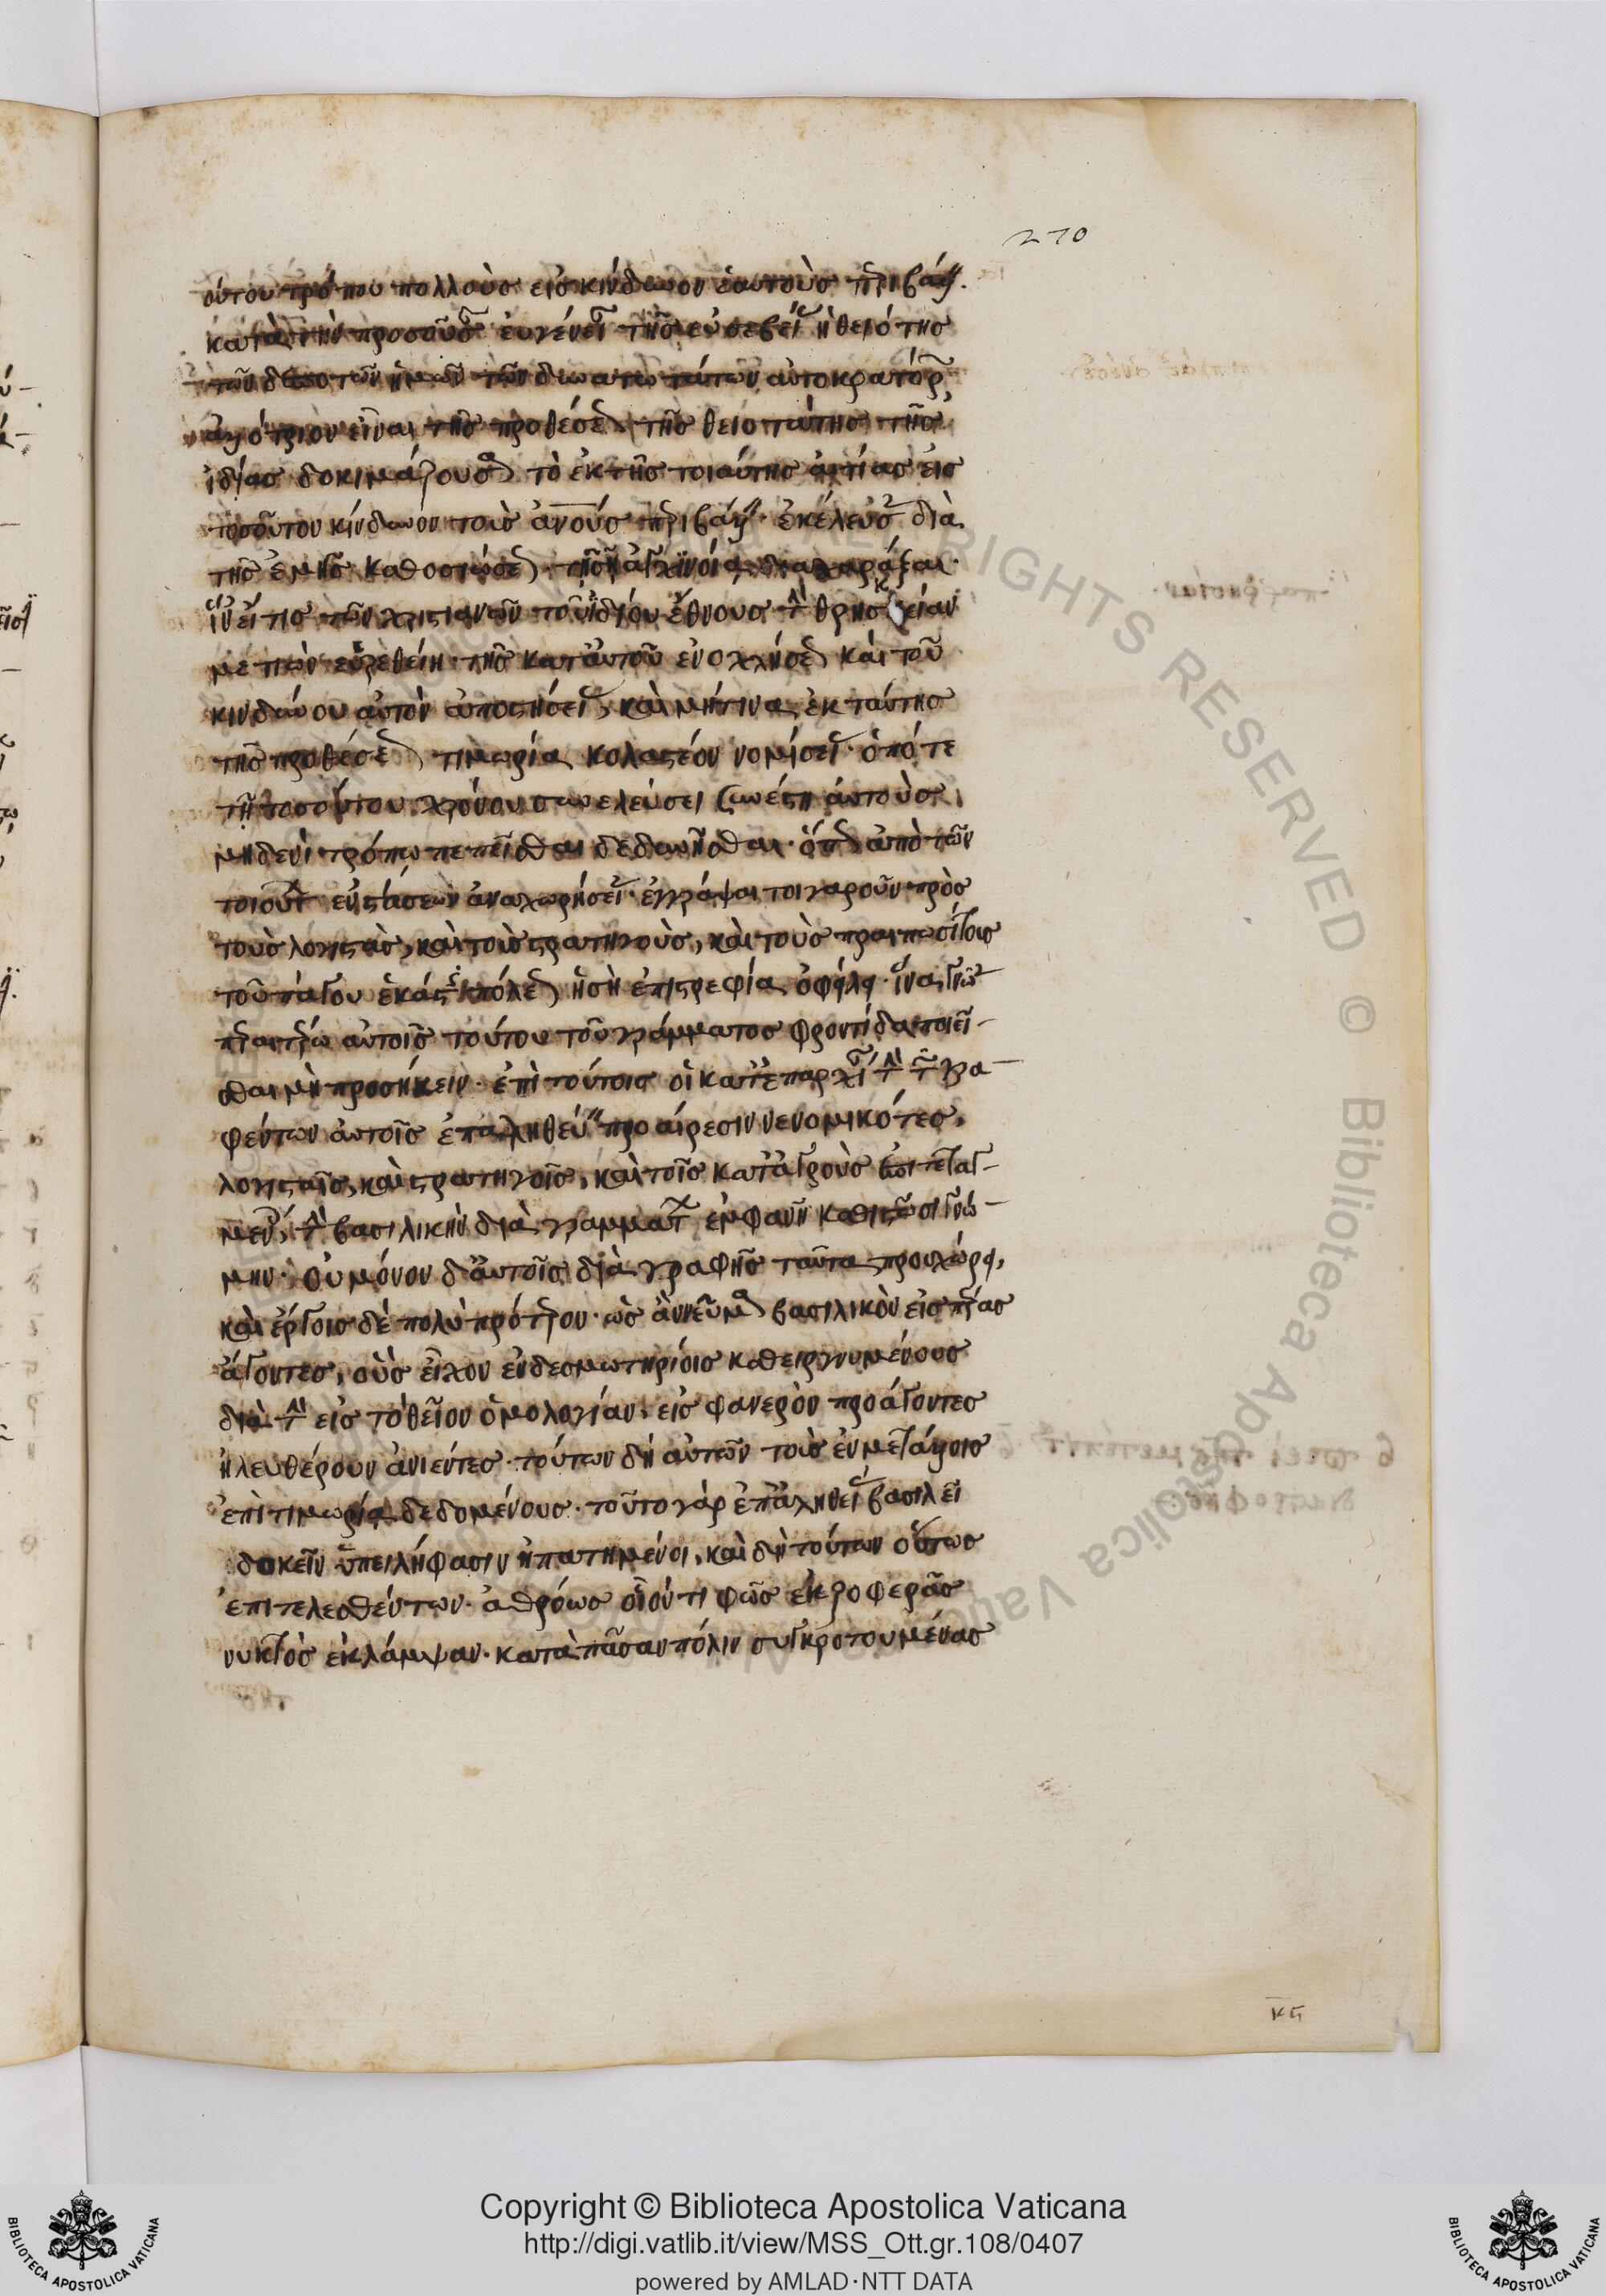 270
οὑτου τρόπου πολλοὺς εἰς κίνδυνον ἑαυτοὺς περιβάλλειν.
κατὰ τὴν προσοῦσαν εὐγένειαν τῆς εὐσεβείας ἡ θειότης
τῶν δεσποτῶν ἡμῶν τῶν δυνατωτάτων αὐτοκρατόρων
ἀλλότριον εἶναι τῆς προθέσεως τῆς θειοτάτης τῆς
ἰδίας δοκιμάζουσα τὸ ἐκ τῆς τοιαύτης αἰτίας εἰς
τοσοῦτον κίνδυνον τοὺς ἀνους περιβάλλειν· ἐκέλευσε διὰ
τῆς ἐμῆς καθοσιώσεως τῆ σῆ ἀγχινοία διαχαράξαι·
ἵν' εἴ τις τῶν χριστιανῶν τοῦ ἰδίου ἔθνους τὴν θρησκείαν
μετιὼν εὑρεθείη· τῆς κατ' αὐτοῦ ἐνοχλήσεως καὶ τοῦ
κινδύνου αὐτὸν ἀποστήσειας, καὶ μήτινα ἐκ ταύτης
τῆς προθέσεως τιμωρία κολαστέον νομίσειας· ὁπότε
τῆ τοσούτου χρόνου συνελεύσει συνέστη αὐτοὺς
μηδενὶ τρόπω πεπεῖσθαι δεδυνῆσθαι· ὅπως ἀπὸ τῶν
τοιούτων ἐνστάσεων ἀναχωρήσειαν· ἐγγράψαι τοιγαροῦν πρὸς
τοὺς λογιστὰς, καὶ τοὺς στρατηγοὺς, καὶ τοὺς πραιποσίτους
τοῦ πάγου ἑκάστης πόλεως ἡ σὴ ἐπιστρεφία ὀφείλει· ἵνα γνῶεν
περαιτέρω αὐτοῖς τούτου τοῦ γράμματος φροντίδα ποιεῖ-
σθαι μὴ προσήκειν· ἐπὶ τούτοις οἱ κατ' ἐπαρχίαν τὴν τῶν γρα-
φέντων αὐτοῖς ἐπαληθεύειν προαίρεσιν νενομικότες,
λογισταῖς, καὶ στρατηγοῖς, καὶ τοῖς κατ' ἀγροὺς ἐπιτεταγ-
μένοις, τὴν βασιλικὴν διὰ γραμμάτων ἐμφανῆ καθιστῶσι γνώ-
μην· Οὐ μόνον δ' αὐτοῖς διὰ γραφῆς ταῦτα προυχώρει,
καὶ ἔργοις δὲ πολὺ πρότερον· ὡς ἂν νεῦμα βασιλικὸν εἰς πέρας
ἄγοντες, οὓς εἶχον ἐν δεσμωτηρίοις καθειργνυμένους
διὰ τὴν εἰς τὸ θεῖον ὁμολογίαν, εἰς φανερὸν προάγοντες
ἠλευθέρουν ἀνιέντες· τούτων δὴ αὐτῶν τοὺς ἐν μετάλλοις
ἐπὶ τιμωρία δεδομένους· τοῦτο γὰρ ἐπ' ἀληθείας βασιλεῖ
δοκεῖν ὑπειλήφασιν ἠπατημένοι, καὶ δὴ τούτων οὕτως
ἐπιτελεσθέντων· ἀθρόως οἷόν τι φῶς ἐκ ζοφερᾶς
νυκτὸς ἐκλάμψαν· κατὰ πᾶσαν πόλιν συγκροτουμένας
Copyright © Biblioteca Apostolica Vaticana
http://digi.vatlib.it/view/MSS_Ott.gr.108/0407
powered by AMLAD·NTT DATA